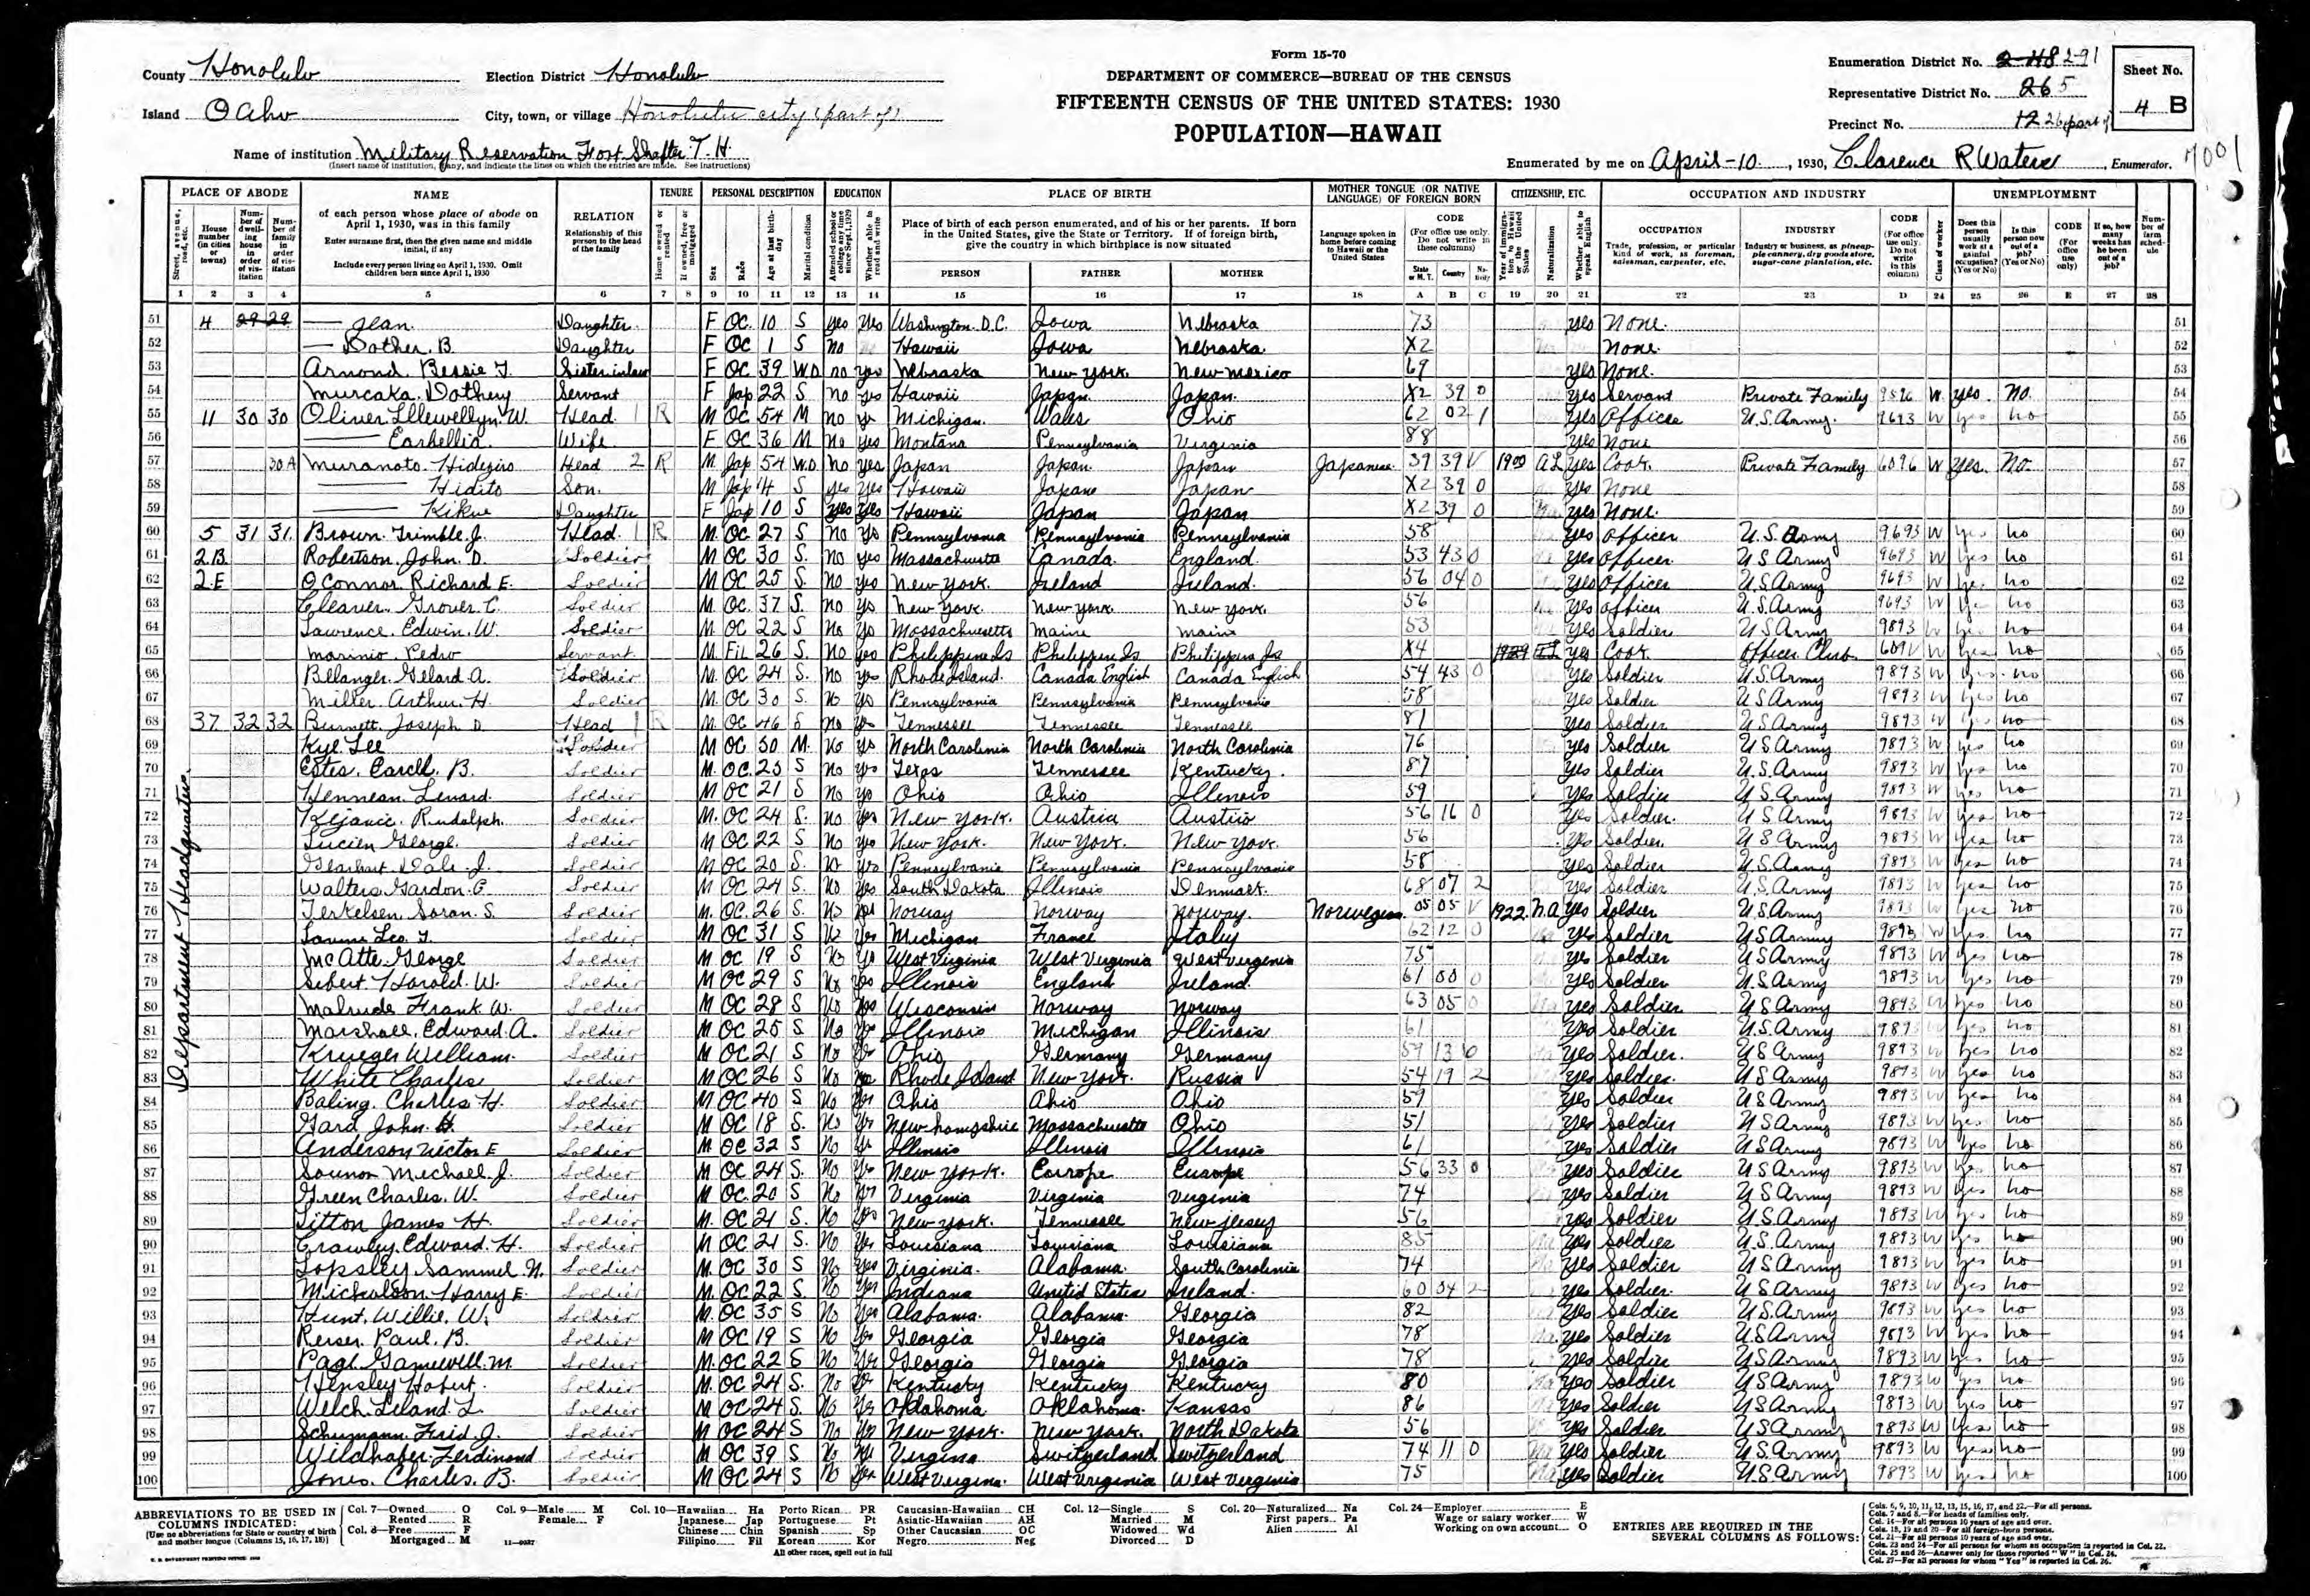 Form 15-70
DEPARTMENT OF COMMERCE—BUREAU OF THE CENSUS
FIFTEENTH CENSUS OF THE UNITED STATES: 1930
POPULATION—HAWAII
County Honolulu Election District Honolulu
Island Oahu City, town, or village Honolulu city (part of)
Name of institution Military Reservation Fort Shafter T.H.
(Insert name of institution, if any, and indicate the lines on which the entries are made. See instructions)
Enumeration District No. 2-48 291
Representative District No. 265
Precinct No. 12 26 (part of)
Sheet No. 4 B
Enumerated by me on April-10, 1930, Clarence R Waters, Enumerator. 7001
PLACE OF ABODE NAME RELATION TENURE PERSONAL DESCRIPTION EDUCATION PLACE OF BIRTH MOTHER TONGUE (OR NATIVE LANGUAGE) OF FOREIGN BORN CITIZENSHIP, ETC. OCCUPATION AND INDUSTRY UNEMPLOYMENT
of each person whose place of abode on April 1, 1930, was in this family
Enter surname first, then the given name and middle initial, if any
Include every person living on April 1, 1930. Omit children born since April 1, 1930
Relationship of this person to the head of the family
Place of birth of each person enumerated, and of his or her parents. If born in the United States, give the State or Territory. If of foreign birth, give the country in which birthplace is now situated
PERSON FATHER MOTHER
Department Headquarters
51 4 29 29 — Jean Daughter F OC 10 S yes yes Washington D.C. Iowa Nebraska 73 yes None 51
52 B. Daughter F OC 1 S no Hawaii Iowa Nebraska X2 None 52
53 Armond Bessie Sister in law F OC 39 WD no yes Nebraska New York New Mexico 69 yes None 53
54 Servant F Jap 22 S no yes Hawaii Japan Japan X2 39 0 yes Servant Private Family 9896 W yes No 54
55 11 30 30 Oliver Llewellyn W. Head 1 R M OC 54 M no yes Michigan Wales Ohio 62 02 1 yes Officer U.S. Army 9693 W yes no 55
56 Wife F OC 36 M no yes Montana Pennsylvania Virginia 88 yes None 56
57 30A Head 2 R M Jap 54 WD no yes Japan Japan Japan Japanese 39 39 V 1900 AL yes Cook Private Family 6096 W yes No 57
58 Son M Jap 14 S yes yes Hawaii Japan Japan X2 39 0 yes None 58
59 Daughter F Jap 10 S yes yes Hawaii Japan Japan X2 39 0 yes None 59
60 5 31 31 Brown Trimble J. Head 1 R M OC 27 S no yes Pennsylvania Pennsylvania Pennsylvania 58 yes Officer U.S. Army 9693 W yes no 60
61 2B Robertson John D. Soldier M OC 30 S no yes Massachusetts Canada England 53 43 0 yes Officer U S Army 9693 W yes no 61
62 2E O Connor Richard E. Soldier M OC 25 S no yes New York Ireland Ireland 56 04 0 yes Officer U.S. Army 9693 W yes no 62
63 Cleaver Grover C. Soldier M OC 37 S no yes New York New York New York 56 yes Officer U.S. Army 9693 W yes no 63
64 Lawrence Edwin W. Soldier M OC 22 S no yes Massachusetts Maine Maine 53 yes Soldier U S Army 9893 W yes no 64
65 Marinio Pedro Servant M Fil 26 S no yes Philippine Is Philippine Is Philippine Is X4 1929 yes Cook Officer Club 609V W yes no 65
66 Belanger Gelard A. Soldier M OC 24 S no yes Rhode Island Canada English Canada English 54 43 0 yes Soldier U.S. Army 9893 W yes no 66
67 Miller Arthur H. Soldier M OC 30 S no yes Pennsylvania Pennsylvania Pennsylvania 58 yes Soldier U S Army 9893 W yes no 67
68 37 32 32 Burnett Joseph D Head 1 R M OC 46 S no yes Tennessee Tennessee Tennessee 81 yes Soldier U S Army 9893 W yes no 68
69 Kye Lee Soldier M OC 50 M no yes North Carolinia North Carolinia North Carolinia 76 yes Soldier U S Army 9893 W yes no 69
70 Estes Carell B. Soldier M OC 25 S no yes Texas Tennessee Kentucky 87 yes Soldier U.S. Army 9893 W yes no 70
71 Soldier M OC 21 S no yes Ohio Ohio Illinois 59 yes Soldier U S Army 9893 W yes no 71
72 Rudolph Soldier M OC 24 S no yes New York Austria Austria 56 16 0 yes Soldier U S Army 9893 W yes no 72
73 Lucien George Soldier M OC 22 S no yes New York New York New York 56 yes Soldier U S Army 9893 W yes no 73
74 Gearhart Dale J. Soldier M OC 20 S no yes Pennsylvania Pennsylvania Pennsylvania 58 yes Soldier U.S. Army 9893 W yes no 74
75 Walters Gordon Soldier M OC 24 S no yes South Dakota Illinois Denmark 68 07 2 yes Soldier U.S. Army 9893 W yes no 75
76 Terkelsen Soran S. Soldier M OC 26 S no yes Norway Norway Norway Norwegian 05 05 V 1922 NA yes Soldier U.S. Army 9893 W yes no 76
77 Leo Soldier M OC 31 S no yes Michigan France Italy 62 12 0 yes Soldier U S Army 9893 W yes no 77
78 McAtte George Soldier M OC 19 S no yes West Virginia West Virginia West Virginia 75 yes Soldier U S Army 9893 W yes no 78
79 Sebert Harold W. Soldier M OC 29 S no yes Illinois England Ireland 61 00 0 yes Soldier U.S. Army 9893 W yes no 79
80 Malrude Frank W. Soldier M OC 28 S no yes Wisconsin Norway Norway 63 05 0 yes Soldier U S Army 9893 W yes no 80
81 Marshall Edward A. Soldier M OC 25 S no yes Illinois Michigan Illinois 61 yes Soldier U.S. Army 9893 W yes no 81
82 Krueger William Soldier M OC 21 S no yes Ohio Germany Germany 59 13 0 yes Soldier U S Army 9893 W yes no 82
83 White Charles Soldier M OC 26 S no yes Rhode Island New York Russia 54 19 2 yes Soldier U S Army 9893 W yes no 83
84 Baling Charles H. Soldier M OC 40 S no yes Ohio Ohio Ohio 59 yes Soldier U S Army 9893 W yes no 84
85 Gard John H. Soldier M OC 18 S no yes New hampshire Massachusetts Ohio 51 yes Soldier U S Army 9893 W yes no 85
86 Anderson Victor E Soldier M OC 32 S no yes Illinois Illinois Illinois 61 yes Soldier U S Army 9893 W yes no 86
87 Michael J. Soldier M OC 24 S no yes New York Europe Europe 56 33 0 yes Soldier U S Army 9893 W yes no 87
88 Green Charles W. Soldier M OC 20 S no yes Virginia Virginia Virginia 74 yes Soldier U S Army 9893 W yes no 88
89 Sitton James H. Soldier M OC 21 S no yes New York Tennessee New Jersey 56 yes Soldier U.S. Army 9893 W yes no 89
90 Crawley Edward H. Soldier M OC 21 S no yes Louisiana Louisiana Louisiana 85 yes Soldier U.S. Army 9893 W yes no 90
91 Lopsley Sammel N. Soldier M OC 30 S no yes Virginia Alabama South Carolinia 74 yes Soldier U S Army 9893 W yes no 91
92 Harry E. Soldier M OC 22 S no yes Indiana United States Ireland 60 04 2 yes Soldier U S Army 9893 W yes no 92
93 Hunt Willie W. Soldier M OC 35 S no yes Alabama Alabama Georgia 82 yes Soldier U.S. Army 9893 W yes no 93
94 Reiser Paul B. Soldier M OC 19 S no yes Georgia Georgia Georgia 78 yes Soldier U S Army 9893 W yes no 94
95 Page Gamewell M Soldier M OC 22 S no yes Georgia Georgia Georgia 78 yes Soldier U S Army 9893 W yes no 95
96 Hensley Hobert Soldier M OC 24 S no yes Kentucky Kentucky Kentucky 80 yes Soldier U S Army 9893 W yes no 96
97 Welch Leland L. Soldier M OC 24 S no yes Oklahoma Oklahoma Kansas 86 yes Soldier U S Army 9893 W yes no 97
98 Schumann Fried J. Soldier M OC 24 S no yes New York New York North Dakota 56 yes Soldier U S Army 9893 W yes no 98
99 Wildhaber Ferdinand Soldier M OC 39 S no yes Virginia Switzerland Switzerland 74 11 0 yes Soldier U.S. Army 9893 W yes no 99
100 Jones Charles B. Soldier M OC 24 S no yes West Virginia West Virginia West Virginia 75 yes Soldier U.S. Army 9893 W yes no 100
ABBREVIATIONS TO BE USED IN COLUMNS INDICATED:
[Use no abbreviations for State or country of birth and mother tongue (Columns 15, 16, 17, 18)]
Col. 7—Owned O Rented R
Col. 8—Free F Mortgaged M
Col. 9—Male M Female F
Col. 10—Hawaiian Ha Japanese Jap Chinese Chin Filipino Fil Porto Rican PR Portuguese Pt Spanish Sp Korean Kor Caucasian-Hawaiian CH Asiatic-Hawaiian AH Other Caucasian OC Negro Neg
All other races, spell out in full
Col. 12—Single S Married M Widowed Wd Divorced D
Col. 20—Naturalized Na First papers Pa Alien Al
Col. 24—Employer E Wage or salary worker W Working on own account O
ENTRIES ARE REQUIRED IN THE SEVERAL COLUMNS AS FOLLOWS:
Cols. 6, 9, 10, 11, 12, 13, 15, 16, 17, and 22.—For all persons.
Cols. 7 and 8.—For heads of families only.
Col. 14—For all persons 10 years of age and over.
Cols. 18, 19 and 20—For all foreign-born persons.
Col. 21—For all persons 10 years of age and over.
Cols. 23 and 24—For all persons for whom an occupation is reported in Col. 22.
Cols. 25 and 26—Answer only for those reported "W" in Col. 24.
Col. 27—For all persons for whom "Yes" is reported in Col. 26.